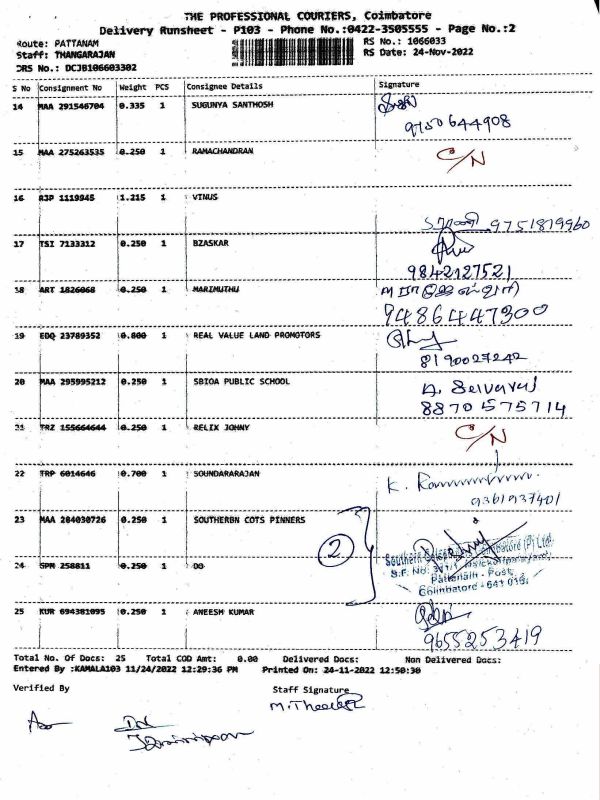 THE PROFESSIONAL COURIERS, Coimbatore
Delivery Runsheet - P103 - Phone No.:0422-3505555 - Page No.:2
Route: PATTANAM RS No.: 1066033
Staff: THANGARAJAN RS Date: 24-Nov-2022
DRS No.: DCJB106603302
S No Consignment No Weight PCS Consignee Details Signature
14 MAA 291546704 0.335 1 SUGUNYA SANTHOSH
9750644908
15 MAA 275263535 0.250 1 RAMACHANDRAN C/N
16 RJP 1119945 1.215 1 VINUS
9751879960
17 TSI 7133312 0.250 1 BZASKAR
9842127521
18 ART 1826068 0.250 1 MARIMUTHU
9486447300
19 EDQ 23789352 0.800 1 REAL VALUE LAND PROMOTORS
8190027242
20 MAA 295995212 0.250 1 SBIOA PUBLIC SCHOOL A. Selvaraj
8870575714
21 TRZ 155664644 0.250 1 RELIX JOHNY C/N
22 TRP 6014646 0.700 1 SOUNDARARAJAN
K.
9361937401
23 MAA 284030726 0.250 1 SOUTHERBN COTS PINNERS
2
Southern Coimbatore (P) Ltd.
24 SPM 258811 0.250 1 DO
S.F. No:
Pattanam - Post,
Coimbatore - 641 016.
25 KUR 694381095 0.250 1 ANEESH KUMAR
9655253419
Total No. Of Docs: 25 Total COD Amt: 0.00 Delivered Docs: Non Delivered Docs:
Entered By :KAMALA103 11/24/2022 12:29:36 PM Printed On: 24-11-2022 12:50:30
Verified By Staff Signature